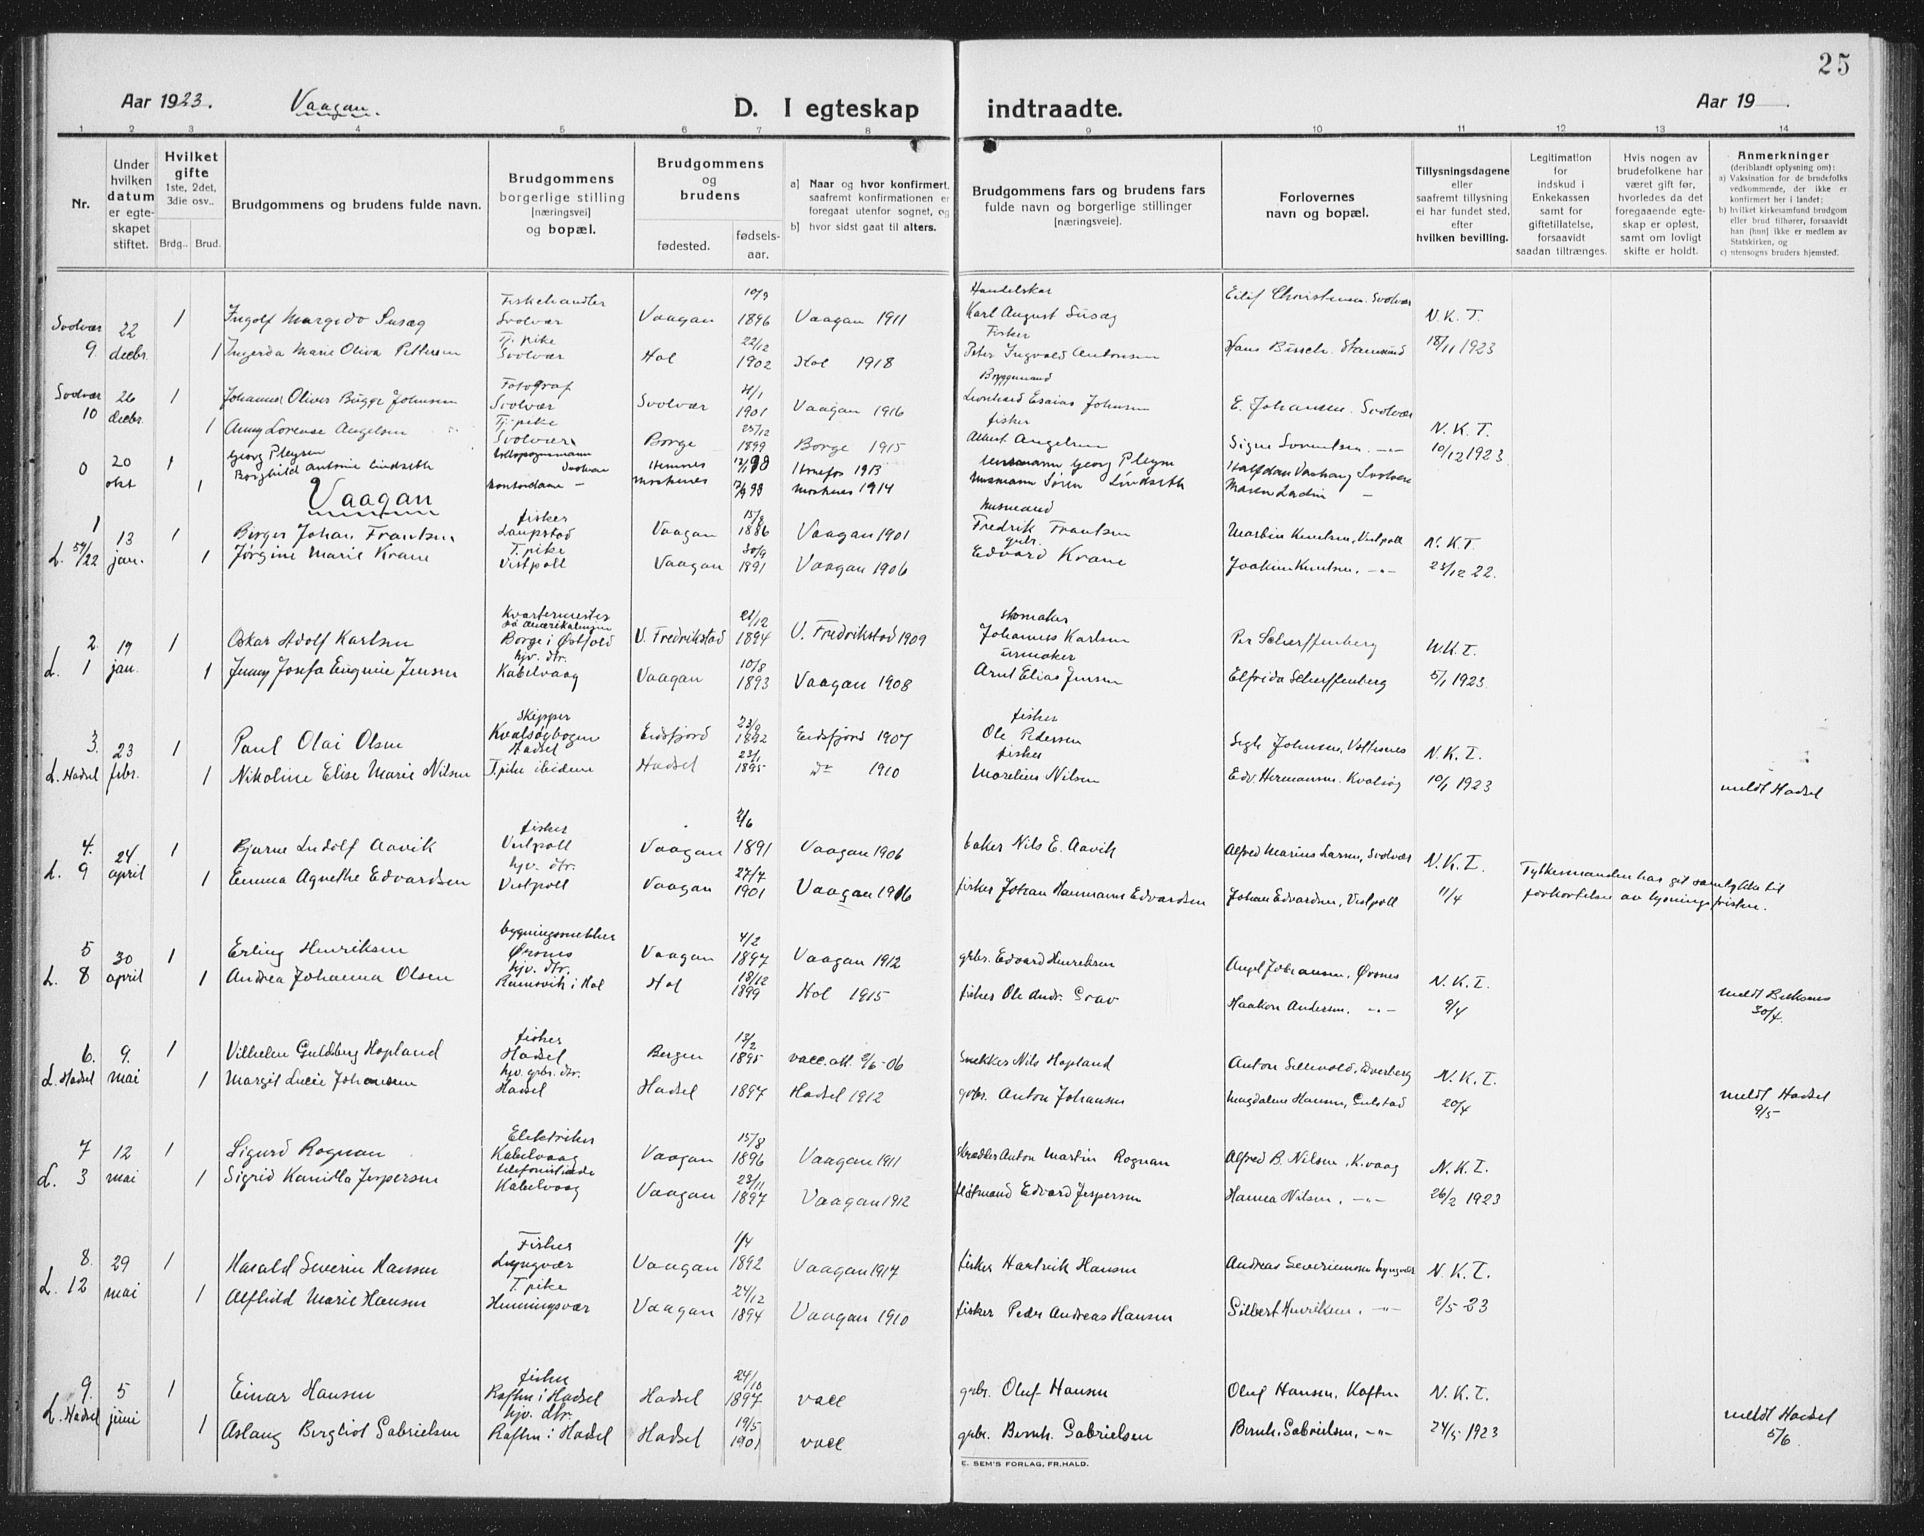 25
Aar 1923. Vaagan. D. I egteskap indtraadte. Aar 19
1 2 3 4 5 6 7 8 9 10 11 12 13 14
Nr.
Under hvilken datum er egteskapet stiftet.
Hvilket gifte 1ste, 2det, 3die osv.. Brdg.. Brud.
Brudgommens og brudens fulde navn.
Brudgommens borgerlige stilling [næringsvei] og bopæl.
Brudgommens og brudens
fødested. fødsels-aar.
a) Naar og hvor konfirmert, saafremt konfirmationen er foregaat utenfor sognet, og
b) hvor sidst gaat til alters.
Brudgommens fars og brudens fars fulde navn og borgerlige stillinger [næringsveie].
Forlovernes navn og bopæl.
Tillysningsdagene eller saafremt tillysning ei har fundet sted, efter hvilken bevilling.
Legitimation for indskud i Enkekassen samt for giftetillatelse, forsaavidt saadan tiltrænges.
Hvis nogen av brudefolkene har været gift før, hvorledes da det foregaaende egteskap er opløst, samt om lovligt skifte er holdt.
Anmerkninger (deriblandt oplysning om):
a) Vaksination for de brudefolks vedkommende, der ikke er konfirmert her i landet;
b) hvilket kirkesamfund brudgom eller brud tilhører, forsaavidt han [hun] ikke er medlem av Statskirken, og
c) utensogns bruders hjemsted.
Svolvær 9. 22 decbr. 1 Ingolf Margido Susæg Fiskehandler Svolvær Vaagan 10/9 1896 Vaagan 1911 Handelskar Karl August Susæg Eilif Christensen. Svolvær N.K.T.
1 Ingerda Marie Oliva Pettersen Tj. pike Svolvær Hol 22/12 1902 Hol 1918 Fisker Peter Ingvald Antonsen Hans Stamsund 18/11 1923
Svolvær 10 26 decbr. 1 Johannes Oliver Bugge Johnsen Fotograf Svolvær Svolvær 1901 Vaagan 1916 Bryggemand Leonhard Esaias Johnsen E. Johansen. Svolvær N.K.T.
1 Anny Lorense Angelsen Tj. pike Svolvær Borge 1899 Borge 1915 fisker Albert Angelsen Signe Lorentsen. -"- 10/12 1923
0 20 okt 1 Georg Pleym Svolvær Hemnes 98 1913 Georg Pleym Halfdan Svolvær
1 Borghild Antonie Lindseth kontordame - Moskenes 98 Moskenes 1914 Søren Lindseth Maren -
Vaagan
1 L. 59/22 13 jan. 1 Birger Johan Frantsen fisker Laupstad Vaagan 15/8 1886 Vaagan 1901 husmand Fredrik Frantsen Martin Knutsen, Vestpoll N.K.T.
1 Jørgine Marie Krane T. pike Vestpoll Vaagan 30/9 1891 Vaagan 1906 gbr. Edvard Krane Joakim Knutsen, -"- 23/12 22.
2. L. 1 19 jan. 1 Oskar Adolf Karlsen Kvartermester Borge i Østfold V. Fredrikstad 21/12 1894 V. Fredrikstad 1909 skomaker Johannes Karlsen Per Scherffenberg N.K.T.
1 Jenny Josefa Eugenie Jensen hjv. dtr. Kabelvaag Vaagan 10/8 1893 Vaagan 1908 urmaker Arnt Elias Jensen Elfrida Scherffenberg 5/1 1923.
3. L. Hadsel 23 febr. 1 Paul Olai Olsen Skipper Hadsel Eidsfjord Eidsfjord 1907 fisker Ole Pedersen Johnsen, N.K.T.
1 Nikoline Elise Marie Nilsen T. pike ibidem Hadsel 23/1 1895 do 1910 fisker Marelius Nilsen Edv. Hermansen. Kvalsøy 10/1 1923 meldt Hadsel
4. L. 9 24. april 1 Bjarne Ludolf Aavik fisker Vestpoll Vaagan 1891 Vaagan 1906 baker Nils E. Aavik Alfred Marius Larsen, Svolvær N.K.T.
1 Emma Agnethe Edvardsen hjv. dtr. Vestpoll Vaagan 27/7 1901 Vaagan 1916 fisker Johan Hanmann Edvardsen Johan Edvardsen, Vestpoll 11/4 Fylkesmanden har git samtykke til forkortelse av lysningsfristen.
5 L. 8 30 april 1 Erling Henriksen bygningssnekker Ørsnes Vaagan 4/2 1897 Vaagan 1912 grbr. Edvard Henriksen Angel Johansen, Ørsnes N.K.T.
1 Andrea Johanna Olsen hjv. dtr. Ramsvik i Hol Hol 18/12 1899 Hol 1915 fisker Ole Andr. Grav Haakon Andersen, -"- 9/4 meldt Buksnes 30/4.
6. L. Hadsel 9. mai 1 Vilhelm Guldberg Hopland fisker Hadsel Bergen 13/2 1895 vacc. att. 2/6-06 Snekker Nils Hopland Anton Sellevold, N.K.T.
1 Margit Lucie Johansen hjv. grbr. dtr. Hadsel Hadsel 1897 Hadsel 1912 grbr. Anton Johansen Magdalene Hansen, Gulstad 20/4 meldt Hadsel 9/5
7 L. 3 12 mai 1 Sigurd Rognan Elektriker Kabelvaag Vaagan 15/8 1896 Vaagan 1911 Skrædder Anton Martin Rognan Alfred B. Nilsen, K.vaag N.K.T.
1 Sigrid Kamilla Jespersen telefonistinde Kabelvaag Vaagan 23/11 1897 Vaagan 1912 Edvard Jespersen Hanna Nilsen, -"- 26/2 1923
8. L. 12 29 mai 1 Harald Severin Hansen Fisker Lyngvær Vaagan 1/4 1892 Vaagan 1917 fisker Hartvik Hansen Andreas Severinsen Lyngvær N.K.T.
1 Alfhild Marie Hansen T. pike Henningsvær Vaagan 24/12 1894 Vaagan 1910 fisker Peder Andreas Hansen Gilbert Henriksen, -"- 2/5 23
9. L. Hadsel 5 juni 1 Einar Hansen fisker Raften i Hadsel Hadsel 24/10 1897 vacc grbr. Oluf Hansen Oluf Hansen, Raften N.K.T.
1 Aslaug Bergliot Gabrielsen hjv. dtr. Raften i Hadsel Hadsel 19/5 1901 vacc grbr. Bernh. Gabrielsen Bernh. Gabrielsen, -"- 24/5 1923 meldt Hadsel 5/6.
E. SEM'S FORLAG, FR.HALD.